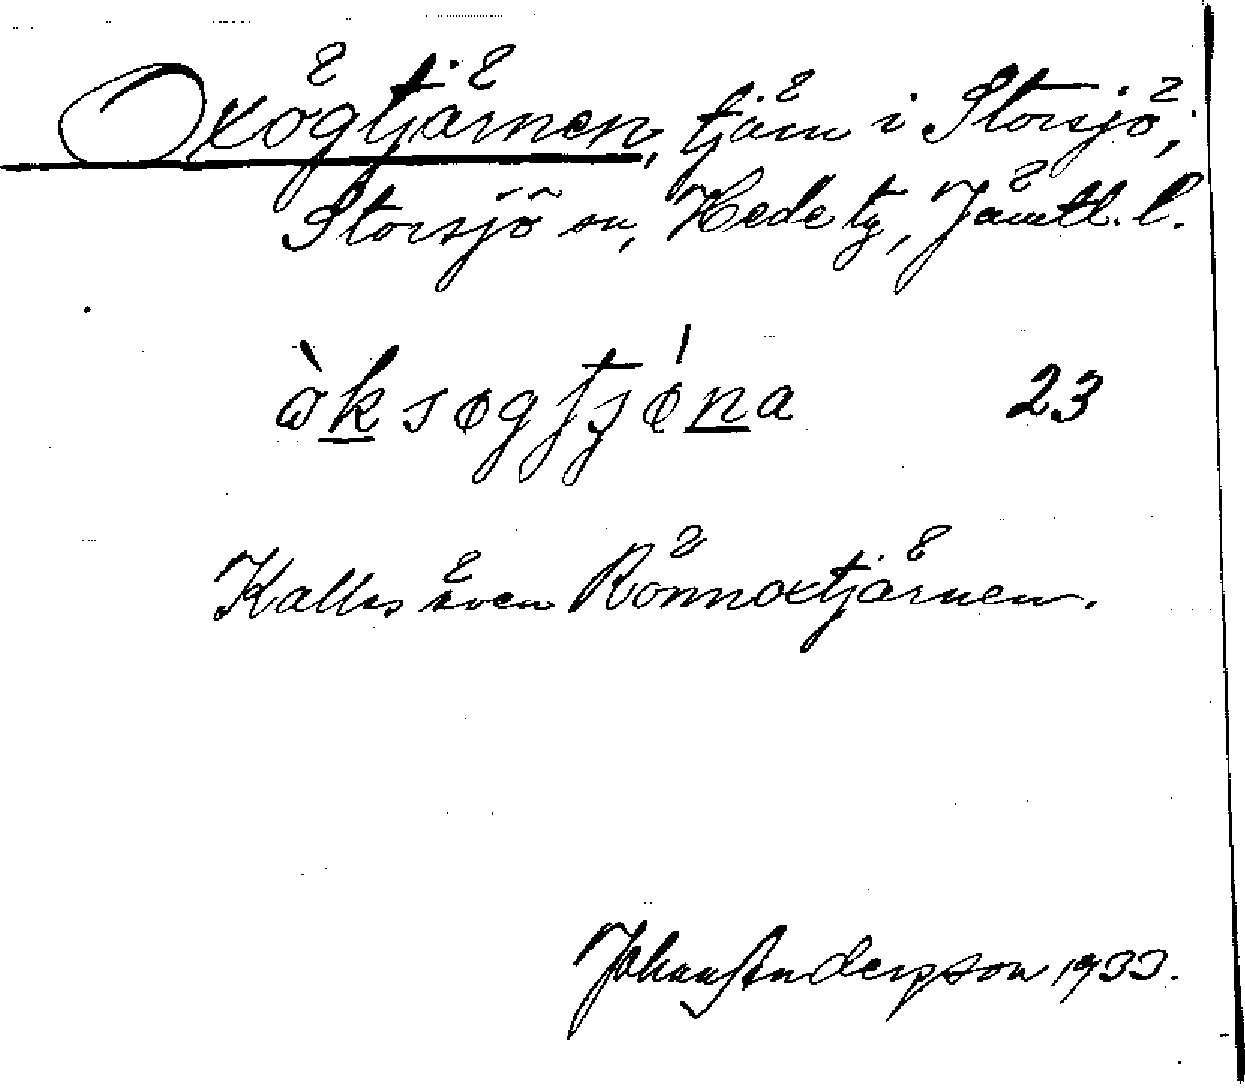 Oxögtjärnen, tjärn i Storsjö,
Storsjö sn, Hede tg, Jämtl. l.
ə̀ksøgtjǿna 23
Kallas även Rönnoxtjärnen.
Johan Anderson 1933.